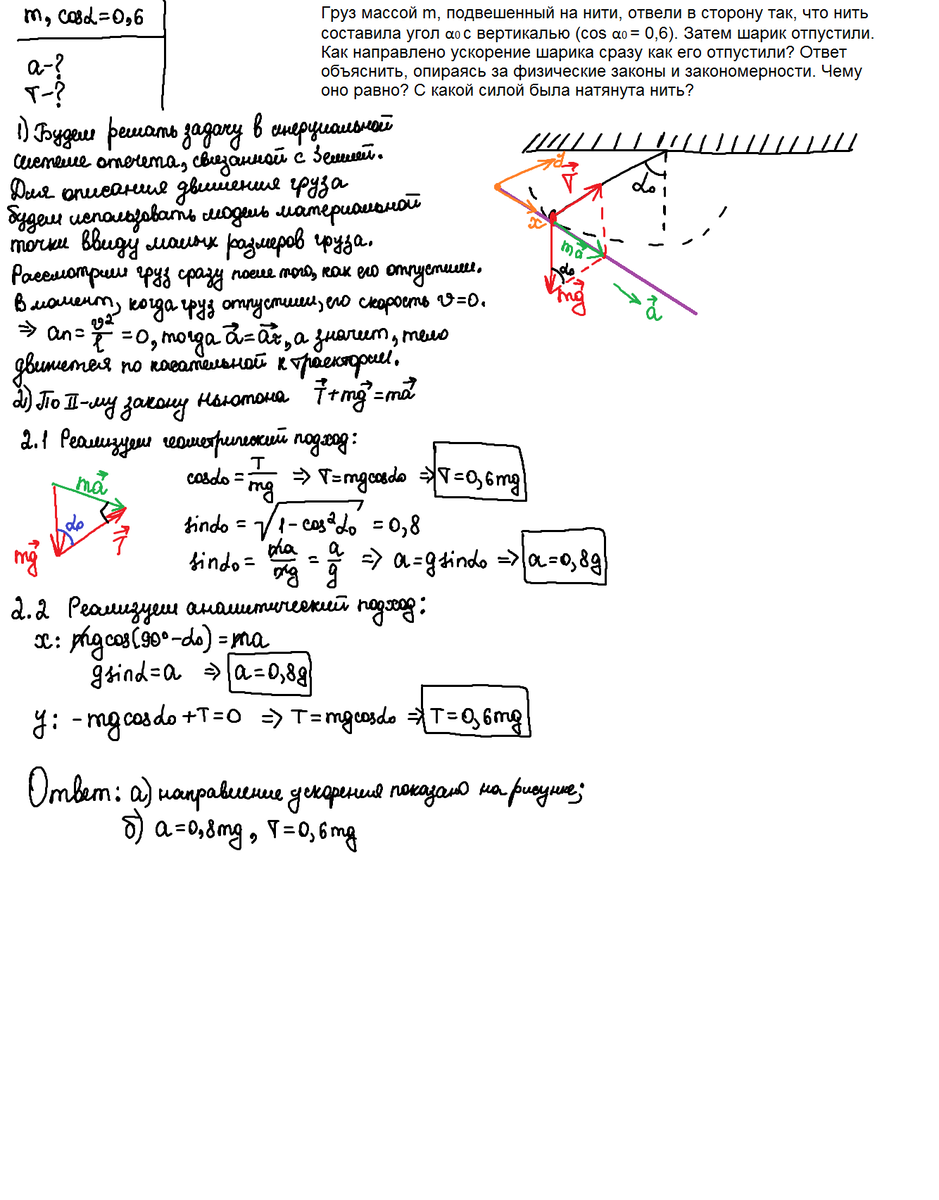 m, cosα=0,6
a-?
T-?
Груз массой m, подвешенный на нити, отвели в сторону так, что нить
составила угол α₀ с вертикалью (cos α₀ = 0,6). Затем шарик отпустили.
Как направлено ускорение шарика сразу как его отпустили? Ответ
объяснить, опираясь за физические законы и закономерности. Чему
оно равно? С какой силой была натянута нить?
1) Будем решать задачу в инерциальной
системе отсчета, связанной с Землей.
Для описания движения груза
будем использовать модель материальной
точки ввиду малых размеров груза.
Рассмотрим груз сразу после того, как его отпустили.
В момент, когда груз отпустили, его скорость v=0.
⇒ aₙ = v²/l = 0, тогда a⃗ = a⃗τ, а значит, тело
движется по касательной к траектории.
y
T⃗
α₀
x
ma⃗
α₀
mg⃗
a⃗
2) По II-му закону Ньютона T⃗ + mg⃗ = ma⃗
2.1 Реализуем геометрический подход:
ma⃗
α₀
mg⃗
T⃗
cosα₀ = T/mg ⇒ T=mgcosα₀ ⇒ T=0,6mg
sinα₀ = √(1-cos²α₀) = 0,8
sinα₀ = ma/mg = a/g ⇒ a=gsinα₀ ⇒ a=0,8g
2.2 Реализуем аналитический подход:
x: mgcos(90°-α₀)=ma
gsinα=a ⇒ a=0,8g
y: -mgcosα₀+T=0 ⇒ T=mgcosα₀ ⇒ T=0,6mg
Ответ: а) направление ускорения показано на рисунке;
б) a=0,8mg, T=0,6mg